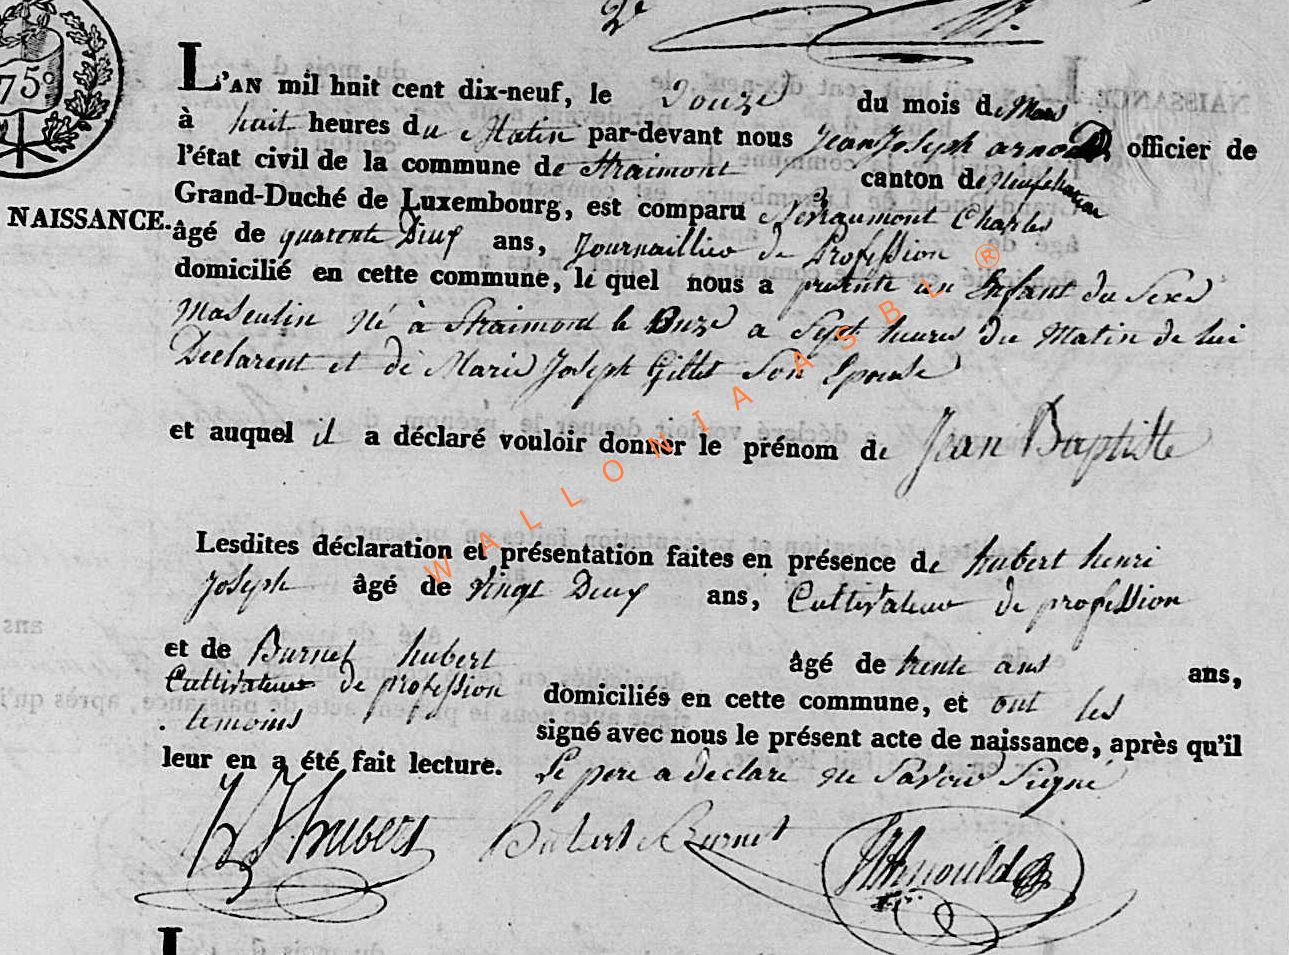 2e
75c
NAISSANCE.
L'AN mil huit cent dix-neuf, le Douze du mois de Mars
à huit heures du Matin par-devant nous Jean Joseph arnould, officier de
l'état civil de la commune de Straimont canton de Neufchateau
Grand-Duché de Luxembourg, est comparu Charles
âgé de quarente Deux ans, Journaillier de Profession
domicilié en cette commune, le quel nous a presenté un Enfant du Sexe
Masculin né à Straimond le Onze a Sept heures du Matin de lui
Declarent et de Marie Joseph Gillet Son Epouse
et auquel il a déclaré vouloir donner le prénom de Jean Baptiste
Lesdites déclaration et présentation faites en présence de hubert henri
Joseph âgé de vingt Deux ans, Cultivateur de profession
et de Burnet hubert âgé de trente ans ans,
Cultivateur de profession domiciliés en cette commune, et ont les
temoins signé avec nous le présent acte de naissance, après qu'il
leur en a été fait lecture. Le pere a declare ne Savoir Signé
hJ hubert hubert Burnet JJ Arnould
WALLONIA ASBL ®
L